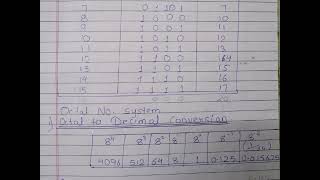 7 0 1 0 1 7
8 1 0 0 0 10
9 1 0 0 1 11
10 1 0 1 0 12
11 1 0 1 1 13
12 1 1 0 0 14
13 1 1 0 1 15
14 1 1 1 0 16
15 1 1 1 1 17
Octal No. system
Octal to Decimal conversion
8⁴ 8³ 8² 8 8⁰ 8⁻¹ 8⁻²
4096 512 64 8 1 0.125 0.015625